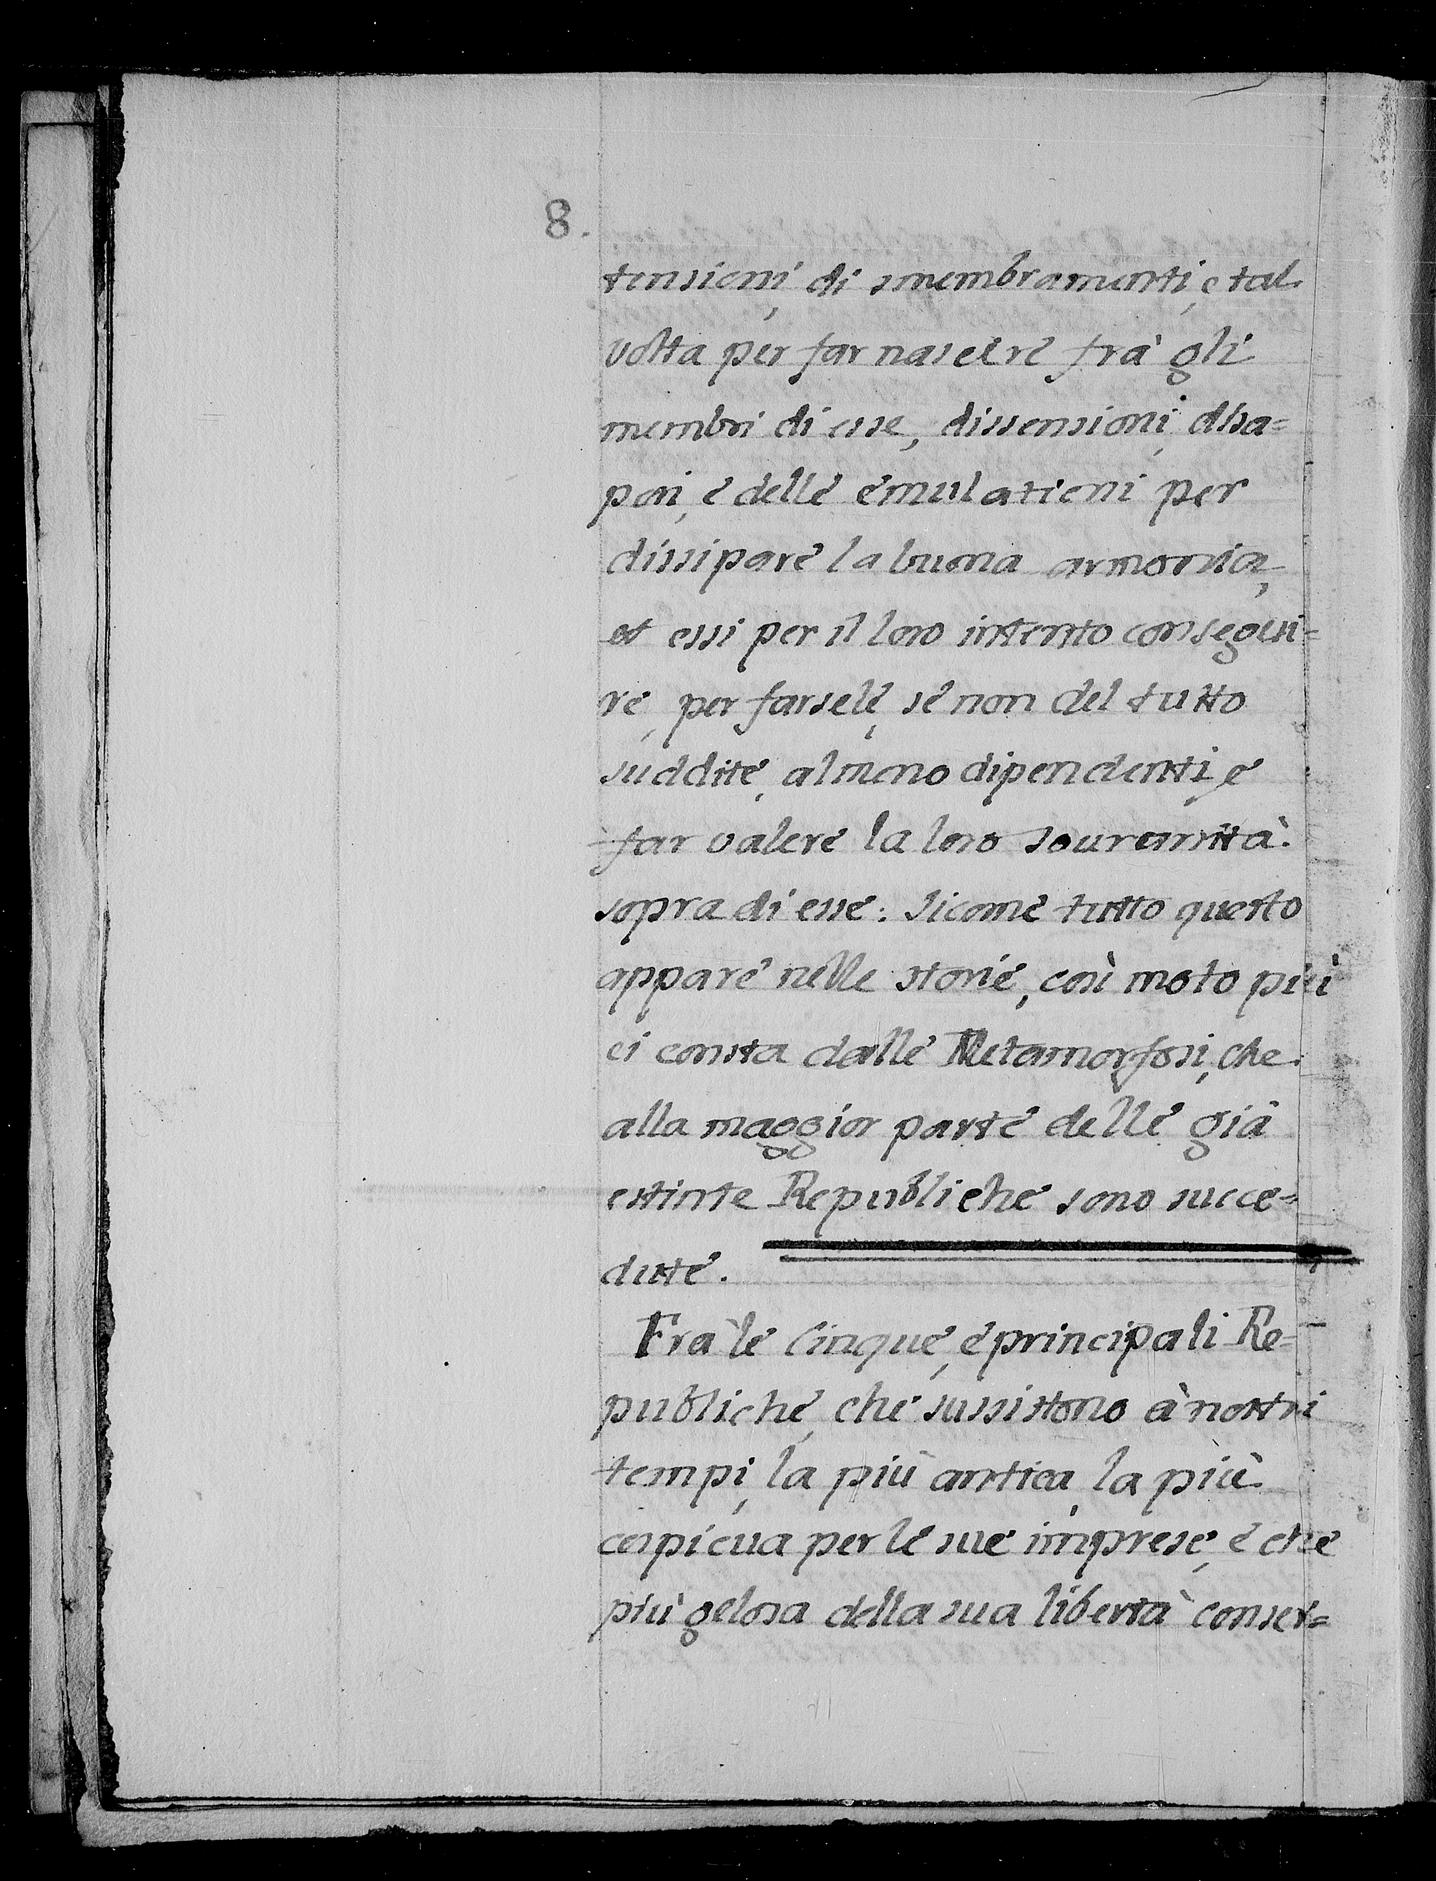 8.
tensioni, di smembramenti, e tal
volta per far nascere frà gli
membri di esse, dissensioni, disa=
pori, è dellè èmulationi per
dissiparè la buona armonia,
et essi per il loro intento consegui=
rè, per farselè, sè non del tutto
sudditè, almeno dipendenti, è
far valerè la loro sourannità
sopra di essè: sicomè tutto questo
apparè nelle storiè, così moto più
ci consta dallè Metamorfosi, che
alla maggior partè dellè già
estinte Republichè sono succe=
dutè.
Frà lè Cinquè, è principali Re=
publichè, chè sussistono à nostri
tempi, la più antica, la più
cospicua per lè suè impresè, è chè
più gelosa della sua libertà conser=